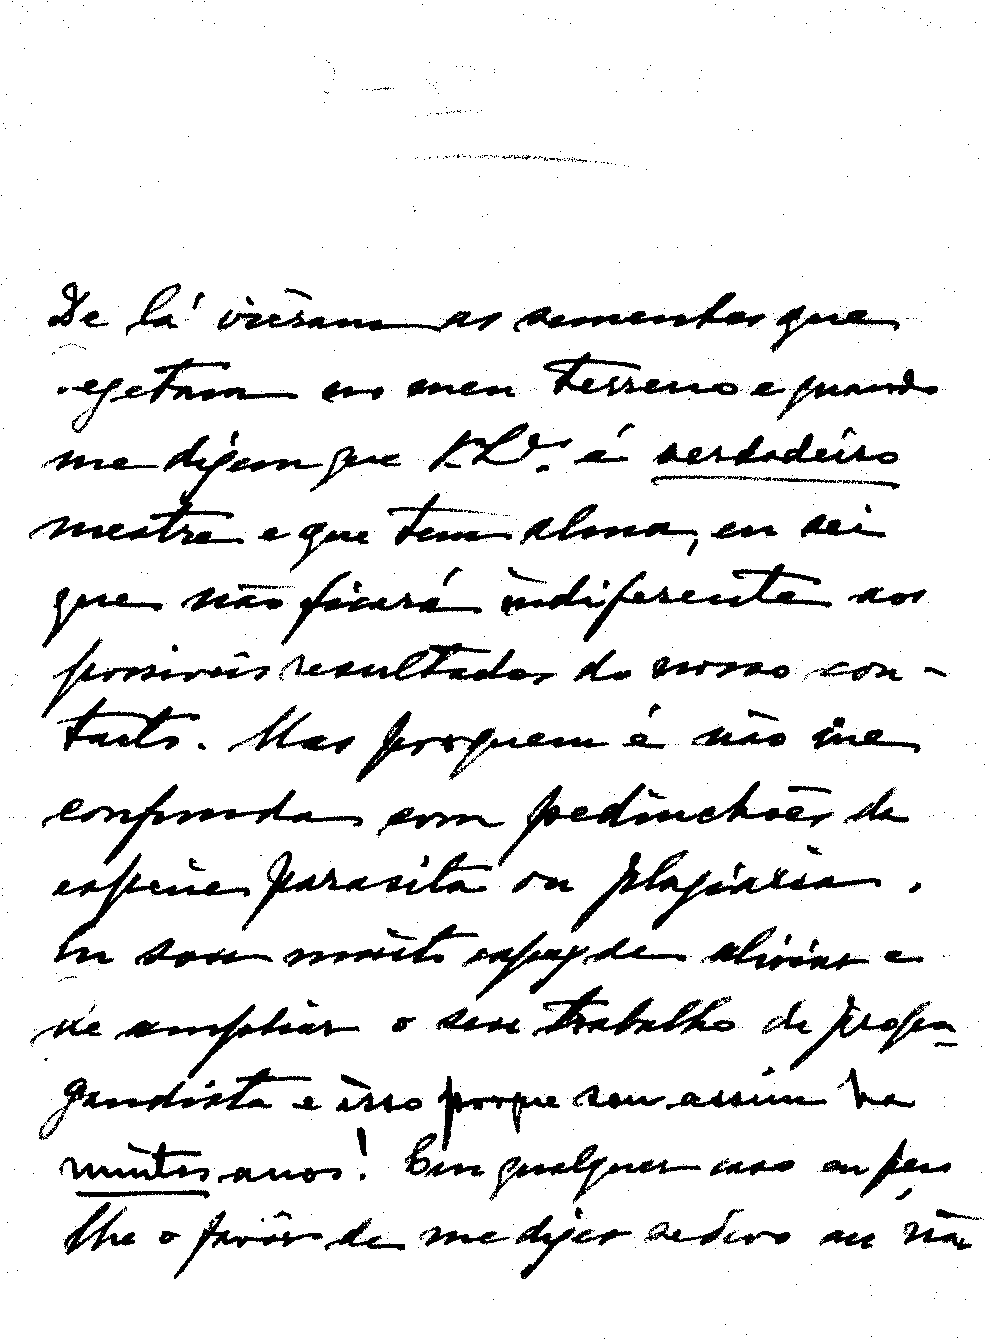 De lá viéram as sementes que
vegetam no meu terreno e quando
me dizem que V. é verdadeiro
mestre e que tem alma, eu sei
que não ficará indiferente aos
possiveis resultados do nosso con-
tacto. Mas porquem é não me
confunda com pedinchões da
espécie parasita ou plagiaria.
Eu sou muito capaz de aliviar e
de ampliar o seu trabalho de propa-
gandista e isso porque sou assim ha
muitos anos! Em qualquer caso eu peço
lhe o favôr de me dizer se devo ou não